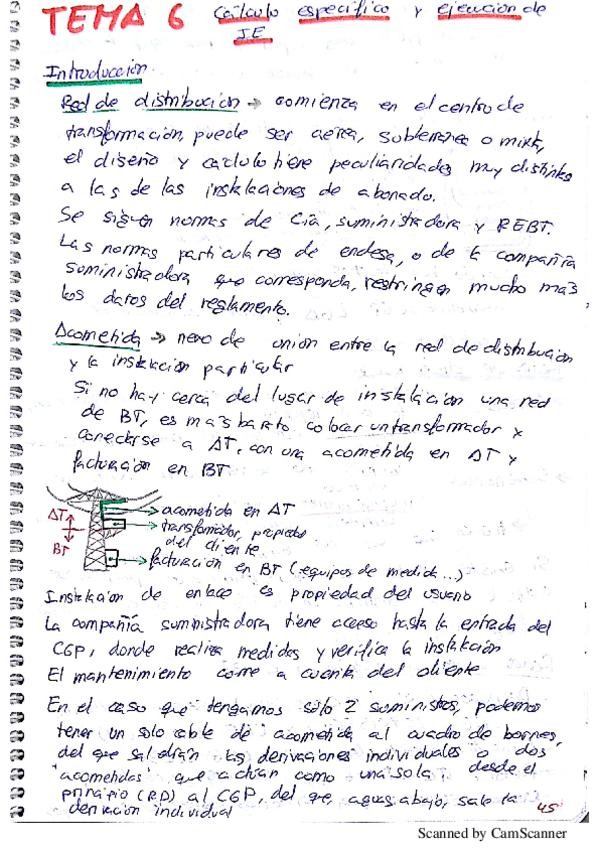 TEMA 6 Cálculo específico y ejecución de
I.E
Introducción
Red de distribución → comienza en el centro de
transformación, puede ser aérea, subterránea o mixta,
el diseño y cálculo tiene peculiaridades muy distintas
a las de las instalaciones de abonado.
Se siguen normas de Cía, suministradora y REBT.
Las normas particulares de endesa, o de la compañía
suministradora que corresponda, restringen mucho más
los datos del reglamento.
Acometida → nexo de unión entre la red de distribución
y la instalación particular
Si no hay cerca del lugar de instalación una red
de BT, es más barato colocar un transformador y
conectarse a AT, con una acometida en AT y
facturación en BT
AT
BT
→ acometida en AT
→ transformador, propiedad
del cliente
→ facturación en BT (equipos de medida...)
Instalación de enlace es propiedad del usuario
La compañía suministradora tiene acceso hasta la entrada del
CGP, donde realiza medidas y verifica la instalación
El mantenimiento corre a cuenta del cliente
En el caso que tengamos sólo 2 suministros, podemos
tener un solo cable de acometida al cuadro de bornes,
del que saldrán las derivaciones individuales o dos
"acometidas" que actúan como una sola, desde el
principio (RD) al CGP, del que, aguas abajo, sale la
derivación individual
45
Scanned by CamScanner